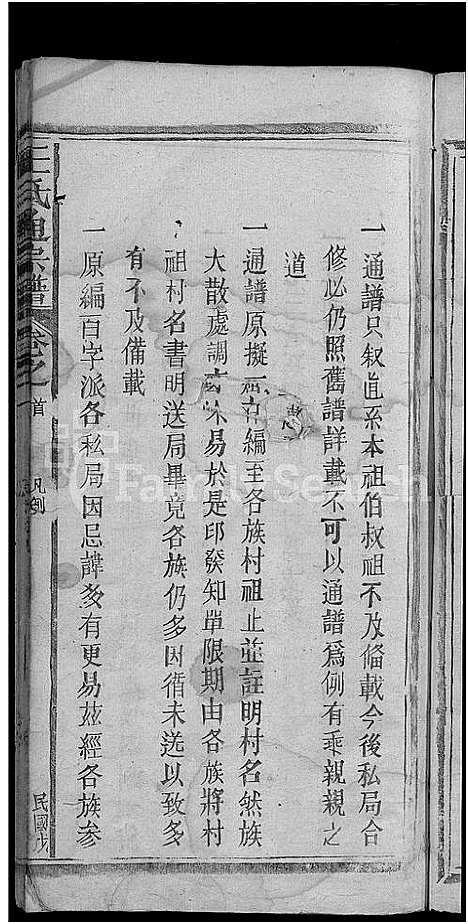 一通譜只叙直系本祖伯叔祖不及偹載今後私局合
修必仍照舊譜詳載不可以通譜爲例有乖親親之
道
一通譜原擬編至各族村祖止並註明村名然族
大散處調易於是印發知單限期由各族將村
祖村名書明送局畢竟各族仍多因循未送以致多
有不及備載
一原編百字派各私局因忌諱多有更易茲經各族參
王氏通宗譜
卷之首
凡例
民國戊
FamilySearch